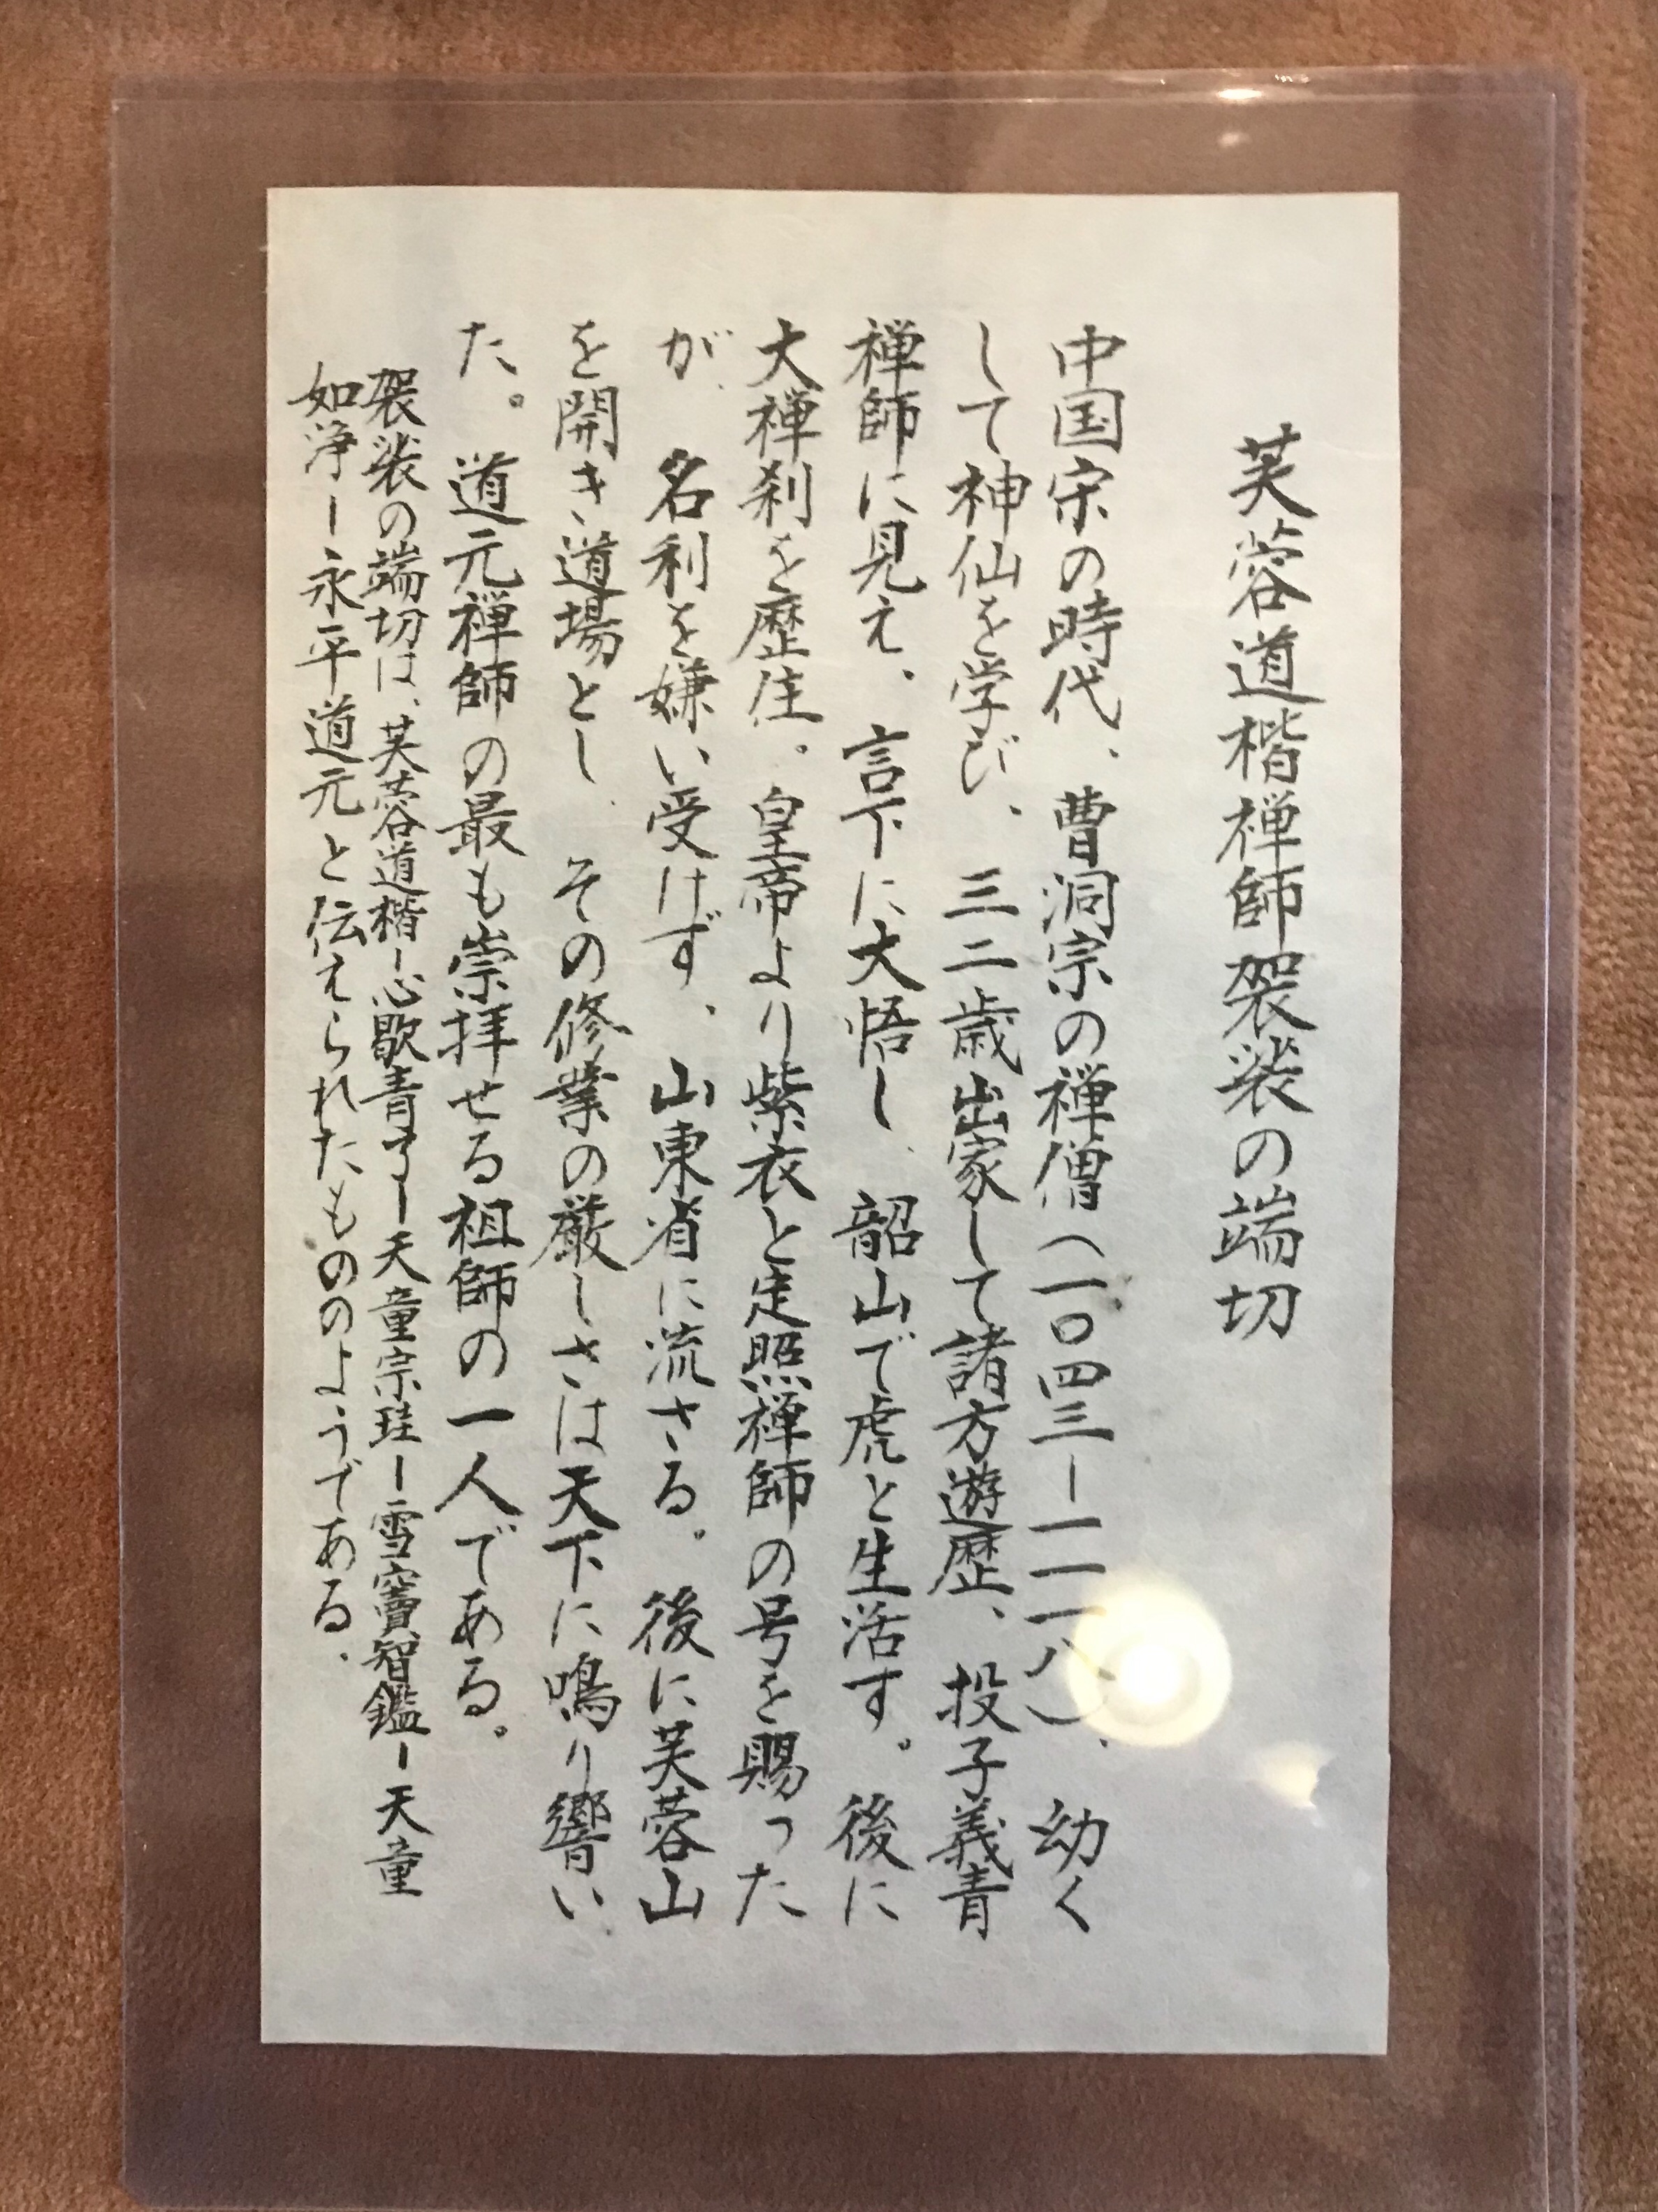 芙蓉道楷禅師袈裟の端切
中国宋の時代、曹洞宗の禅僧（一〇四三ー一一一八）、幼く
して神仙を学び、三二歳出家して諸方遊歴、投子義青
禅師に見え、言下に大悟し、韶山で虎と生活す。後に
大禅刹を歴住。皇帝より紫衣と定照禅師の号を賜った
が、名利を嫌い受けず、山東省に流さる。後に芙蓉山
を開き道場とし、その修業の厳しさは天下に鳴り響い
た。道元禅師の最も崇拝せる祖師の一人である。
袈裟の端切は、芙蓉道楷ー心歇青了ー天童宗珪ー雪竇智鑑ー天童
如浄ー永平道元と伝えられたもののようである。